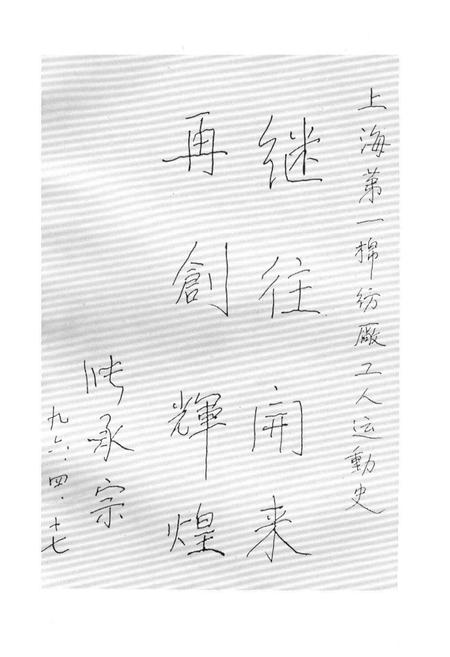 上海第一棉纺廠工人运動史
继往開来
再創輝煌
张承宗
九六.四.十七